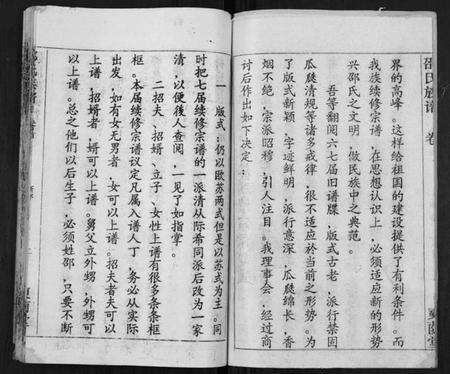 邵氏族谱 卷
界的高峰。这样给祖国的建设提供了有利条件。而
我族续修宗谱，在思想认识上，必须适应新的形势
兴邵氏之文明，做民族中之典范。
吾等翻阅六七届旧谱牒，版式古老，派行禁固
瓜瓞清规等诸多戒律，很不适应於当前之形势。为
了版式新颖，字迹鲜明，派行意深，瓜瓞绵长，香
烟不绝，宗派昭穆，引人注目。我理事会，经过商
讨后作出如下决定：
一 版式：仍以欧苏两式但是以苏式为主。同
时把七届续修宗谱的一派清从际希同派后改为一家
清，以便後人查阅，一见了如指掌。
二招夫、招婿、立子、女性上谱有很多条条框
框。本届续修宗谱议定凡属入谱人丁，务必从实际
出发，如有女无男者，女可以上谱。招夫者夫可以
上谱，招婿者，婿可以上谱。舅父立外甥，外甥可
以上谱。总之他们以后生子，必须姓邵，只要不断